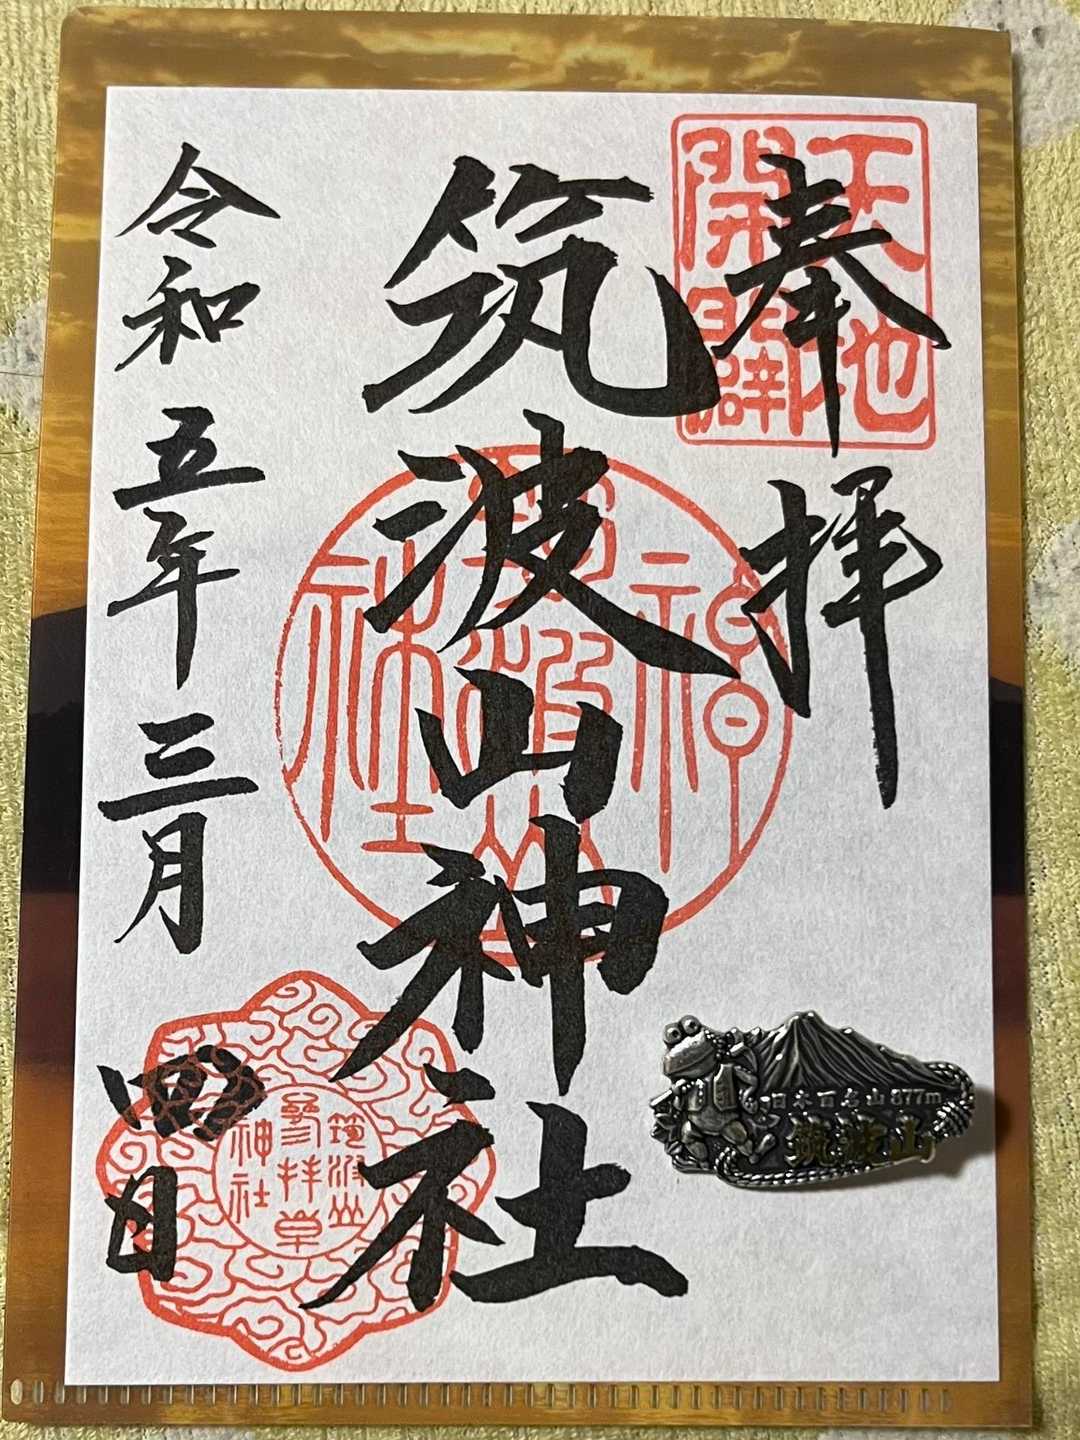 奉拝
天地
開闢
筑波山神社
令和五年三月四日
筑波山
参拝章
神社
日本百名山 877m
筑波山